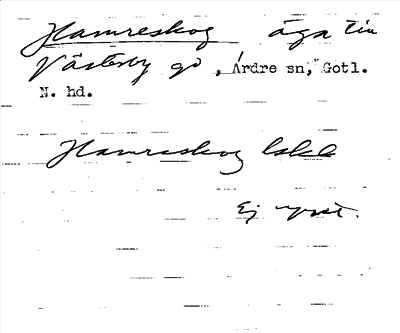 Hamreskog äga till
Västerby gd, Ardre sn, Gotl.
N. hd.
Hamreskog lskl
Ej